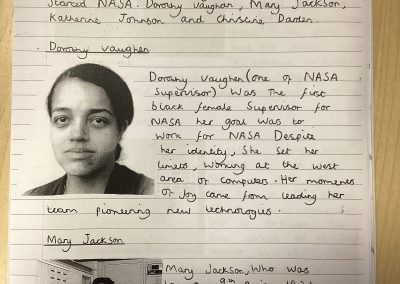 Started NASA. Dorothy Vaughan, Mary Jackson,
Katherine Johnson and Christine Darden.
Dorothy vaughen
Dorothy vaughen (one of NASA
Supervisor) was the first
black female Supervisor for
NASA her goal was to
work for NASA Despite
her identity, She set her
limits, working at the west
area of computers. Her moments
of Joy came from leading her
team pioneering new technologies.
Mary Jackson
Mary Jackson, who was